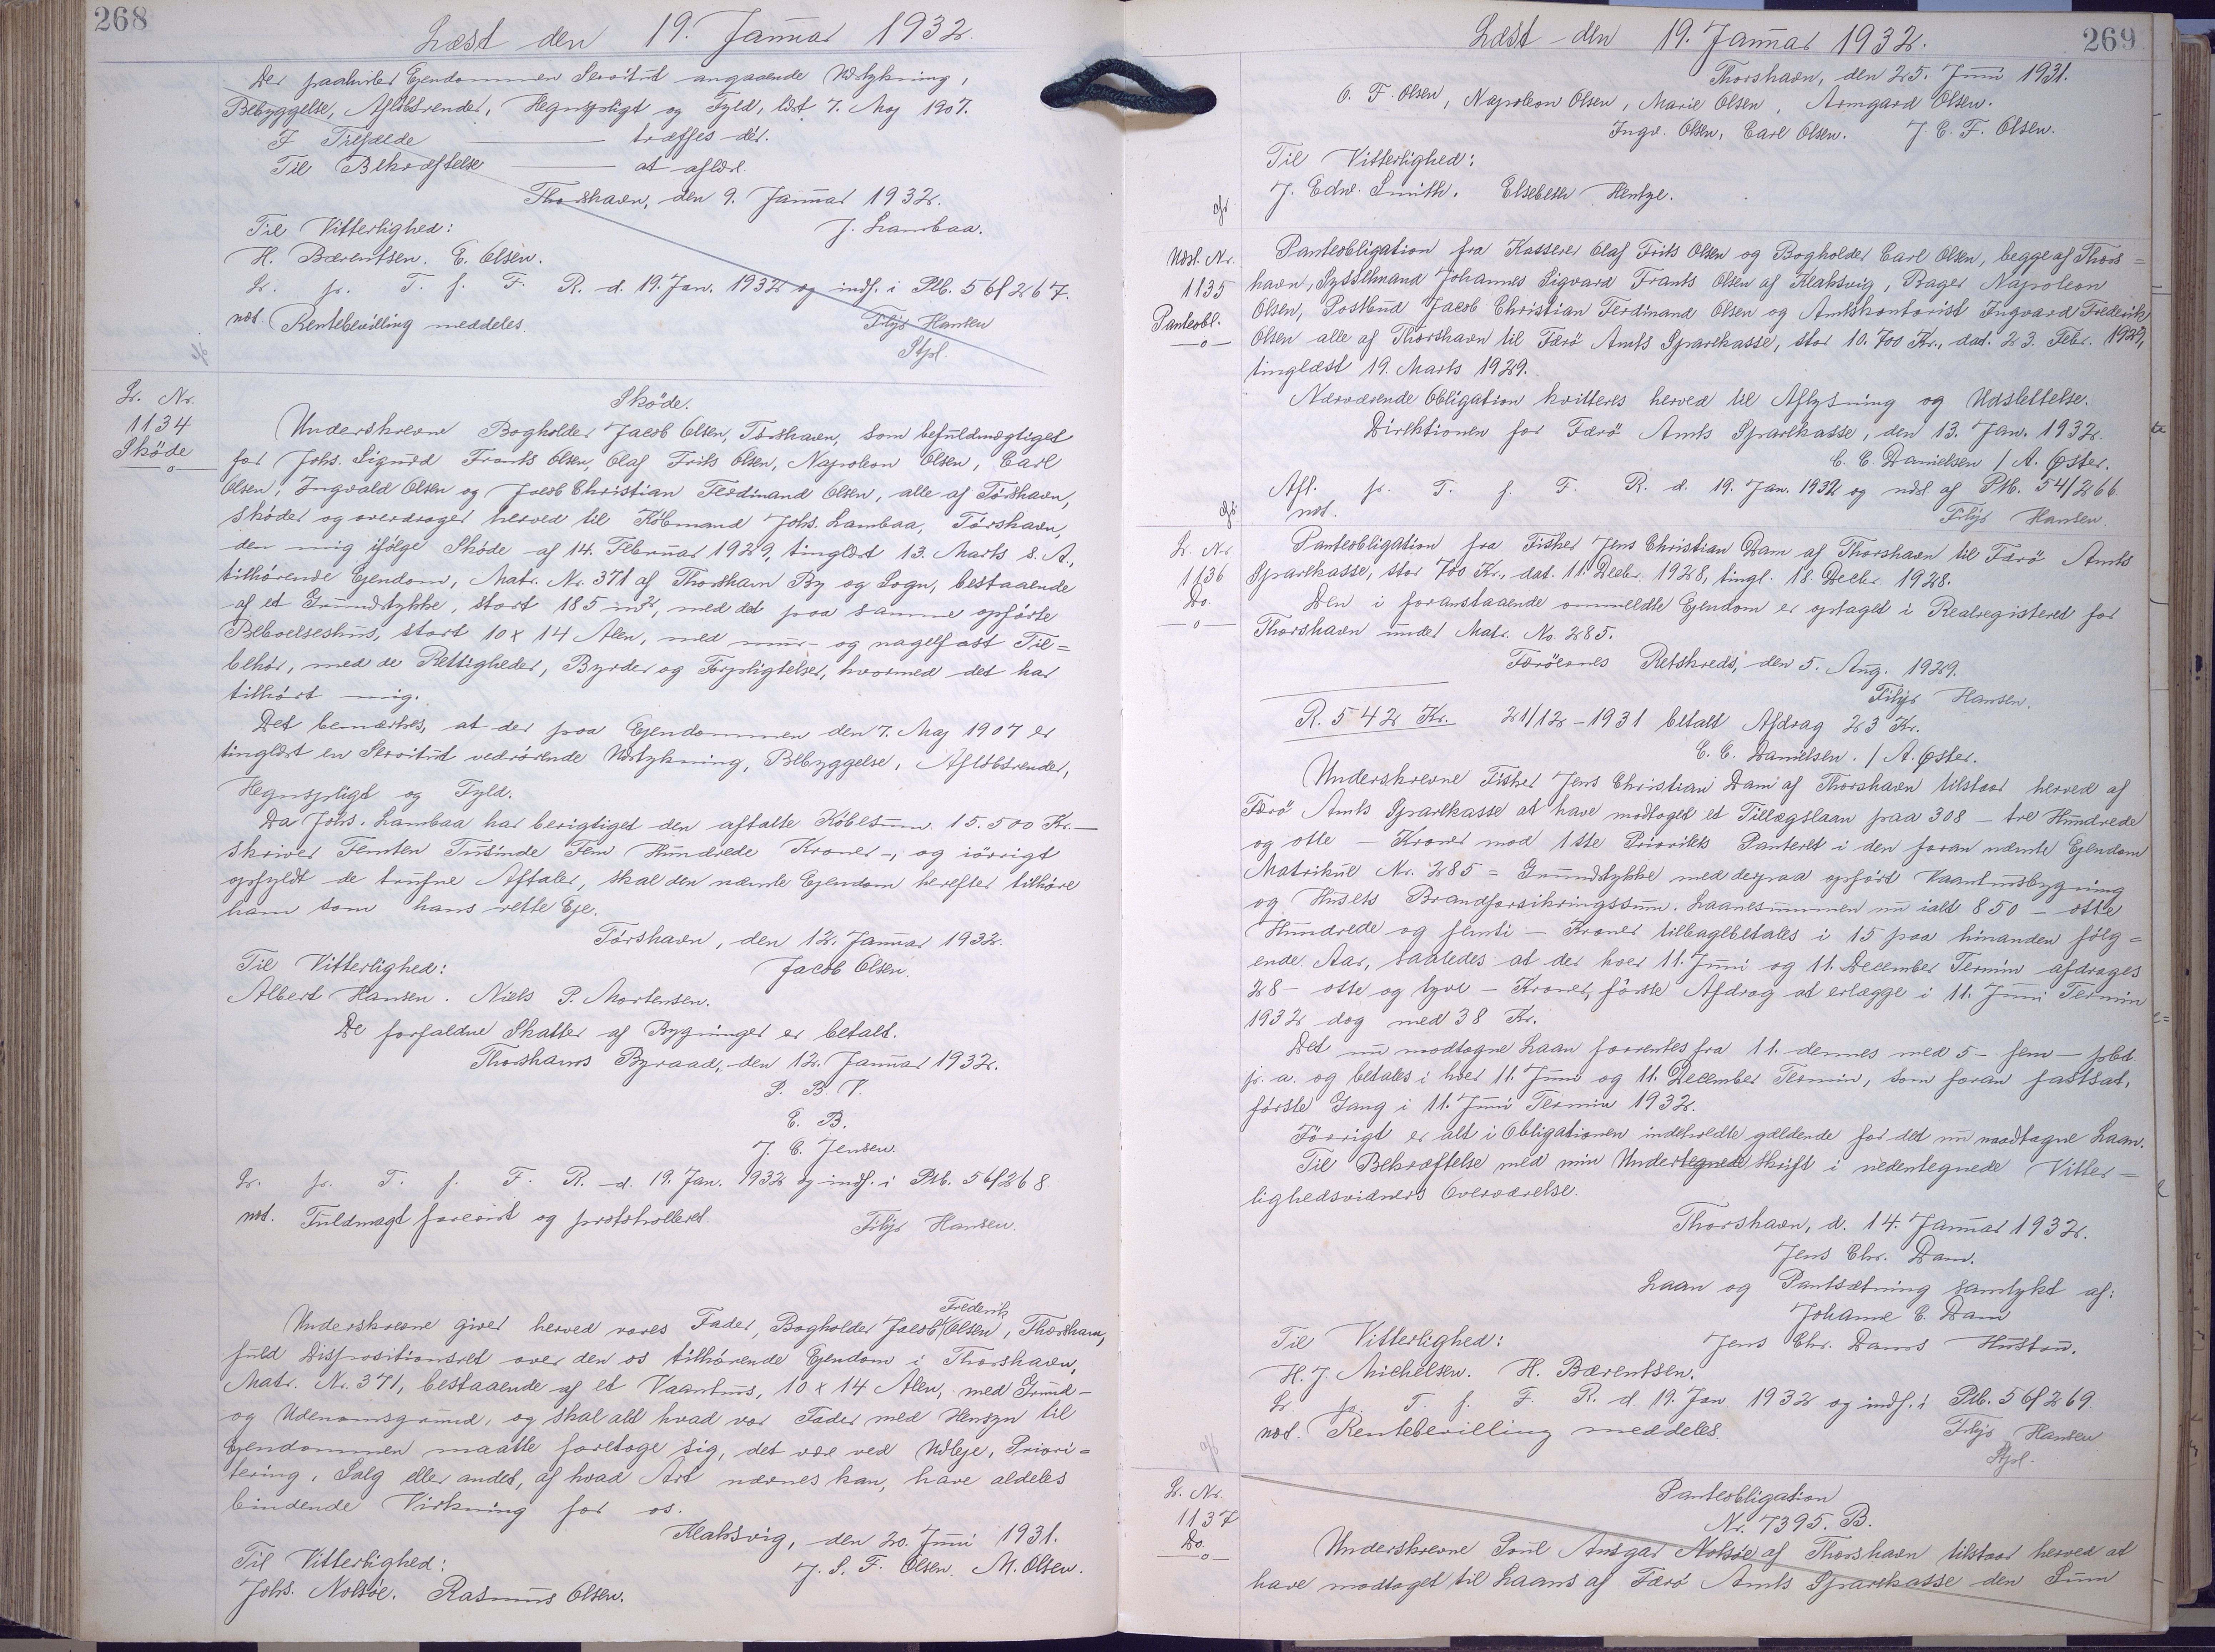 268
Læst den 19. Januar 1932.
Der paahviler Ejendommen Servitut angaaende Udstykning,
Bebyggelse, Afløbsrender, Hegnspligt og Fyld, lst. 7. Maj 1907.
I Tilfælde ——— træffes dér.
Til Bekræftelse ——— at aflæst.
Thorshavn, den 9. Januar 1932.
Til Vitterlighed: J. Lambaa.
H. Bærentsen. E. Olsen.
Lr. pr. T. f. F. R. d. 19. Jan. 1932 og indf. i Ptb. 56/267.
not. Rentebevilling meddeles. Filip Hansen
Stpl.
Lr. Nr.
1134
Sköde
Sköde.
Underskrevne Bogholder Jacob Olsen, Tórshavn, som befuldmægtiget
for Johs. Sigurd Frants Olsen, Olaf Frits Olsen, Napoleon Olsen, Carl
Olsen, Ingvald Olsen og Jacob Christian Ferdinand Olsen, alle af Tórshavn,
skøder og overdrager herved til Købmand Johs. Lambaa, Tórshavn,
den mig ifølge Skøde af 14. Februar 1929, tinglæst 13. Marts s. A.,
tilhørende Ejendom, Matr. Nr. 371 af Thorshavn By og Sogn, bestaaende
af et Grundstykke, stort 185 m², med det paa samme opførte
Beboelseshus, stort 10 x 14 Alen, med mur- og nagelfast Til=
behør, med de Rettigheder, Byrder og Forpligtelser, hvormed det har
tilhørt mig.
Det bemærkes, at der paa Ejendommen den 7. Maj 1907 er
tinglæst en Servitut vedrørende Udstykning, Bebyggelse, Afløbsrender,
Hegnspligt og Fyld.
Da Johs. Lambaa har berigtiget den aftalte Købesum 15.500 Kr. —
skriver Femten Tusinde Fem Hundrede Kroner —, og iøvrigt
opfyldt de trufne Aftaler, skal den nævnte Ejendom herefter tilhøre
ham som hans rette Eje.
Tórshavn, den 12. Januar 1932.
Til Vitterlighed: Jacob Olsen.
Albert Hansen. Niels P. Mortensen.
De forfaldne Skatter af Bygninger er betalt.
Thorshavns Byraad, den 12. Januar 1932.
P. B. V.
E. B.
J. C. Jensen.
Lr. pr. T. f. F. R. d. 19. Jan. 1932 og indf. i Ptb. 56/268
not. Fuldmagt forevist og protokolleret. Filip Hansen.
Frederik
Underskrevne giver herved vores Fader, Bogholder Jacob Olsen, Thorshavn,
fuld Dispositionsret over den os tilhørende Ejendom i Thorshavn,
Matr. Nr. 371, bestaaende af et Vaanhus, 10 x 14 Alen, med Grund-
og Udenomsgrund, og skal alt hvad vor Fader med Hensyn til
Ejendommen maatte foretage sig, det være ved Udleje, Priori=
tering, Salg eller andet, af hvad Art nævnes kan, have aldeles
bindende Virkning for os.
Klaksvig, den 20. Juni 1931.
Til Vitterlighed: J. S. F. Olsen. M. Olsen.
Johs. Nolsøe. Rasmus Olsen.
269
Læst den 19. Januar 1932.
Thorshavn, den 25. Juni 1931.
O. F. Olsen, Napoleon Olsen, Marie Olsen, Armgard Olsen.
Ingv. Olsen, Carl Olsen. J. C. F. Olsen.
Til Vitterlighed:
J. Edw. Smith. Elsebeth Hentze.
Udsl. Nr.
1135
Panteobl.
Panteobligation fra Kasserer Olaf Frits Olsen og Bogholder Carl Olsen, begge af Thors=
havn, Sysselmand Johannes Sigvard Frants Olsen af Klaksvig, Bager Napoleon
Olsen, Postbud Jacob Christian Ferdinand Olsen og Amtskontorist Ingvard Frederik
Olsen alle af Thorshavn til Færö Amts Sparekasse, stor 10.700 Kr., dat. 23. Febr. 1929,
tinglæst 19. Marts 1929.
Nærværende Obligation kvitteres herved til Aflysning og Udslettelse.
Direktionen for Færö Amts Sparekasse, den 13. Jan. 1932.
C. C. Danielsen / A. Øster.
Afl. pr. T. f. F. R. d. 19. Jan. 1932 og udsl. af Ptb. 54/266
not. Filip Hansen.
Lr. Nr.
1136
Do.
Panteobligation fra Fisker Jens Christian Dam af Thorshavn til Færö Amts
Sparekasse, stor 700 Kr., dat. 11. Decbr. 1928, tingl. 18. Decbr. 1928.
Den i foranstaaende ommeldte Ejendom er optaget i Realregisteret for
Thorshavn under Matr. No. 285.
Færöernes Retskreds, den 5. Aug. 1929.
Filip Hansen.
R. 542 Kr. 21/12 - 1931 betalt Afdrag 23 Kr.
C. C. Danielsen. / A. Øster.
Underskrevne Fisker Jens Christian Dam af Thorshavn tilstaar herved af
Færö Amts Sparekasse at have modtaget et Tillægslaan paa 308 — tre Hundrede
og otte — Kroner mod 1ste Prioritets Panteret i den foran nævnte Ejendom
Matrikul Nr. 285 = Grundstykke med derpaa opført Vaanhusbygning
og Husets Brandforsikringssum. Laanesummen nu ialt 850 — otte
Hundrede og femti — Kroner tilbagebetales i 15 paa hinanden følg=
ende Aar, saaledes at der hver 11. Juni og 11. December Termin afdrages
28 — otte og tyve — Kroner, første Afdrag at erlægge i 11. Juni Termin
1932 dog med 38 Kr.
Det nu modtagne Laan forrentes fra 11. dennes med 5 — fem — pCt.
p. a. og betales i hver 11. Juni og 11. December Termin, som foran fastsat,
første Gang i 11. Juni Termin 1932.
Iövrigt er alt i Obligationen indeholdte gældende for det nu modtagne Laan.
Til Bekræftelse med min Undertegnede Skrift i nedentegnede Vitter=
lighedsvidners Overværelse.
Thorshavn, d. 14. Januar 1932.
Jens Chr. Dam.
Laan og Pantsætning samtykt af:
Johanne C. Dam
Til Vitterlighed: Jens Chr. Dams Hustru.
H. J. Michelsen. H. Bærentsen.
Lr. pr. T. f. F. R. d. 19. Jan 1932 og indf. i Ptb. 56/269.
not. Rentebevilling meddeles. Filip Hansen
Stpl.
Lr. Nr.
1137
Do.
Panteobligation
Nr. 7395. B.
Underskrevne Poul Ansgar Nolsøe af Thorshavn tilstaar herved at
have modtaget til Laans af Færö Amts Sparekasse den Sum